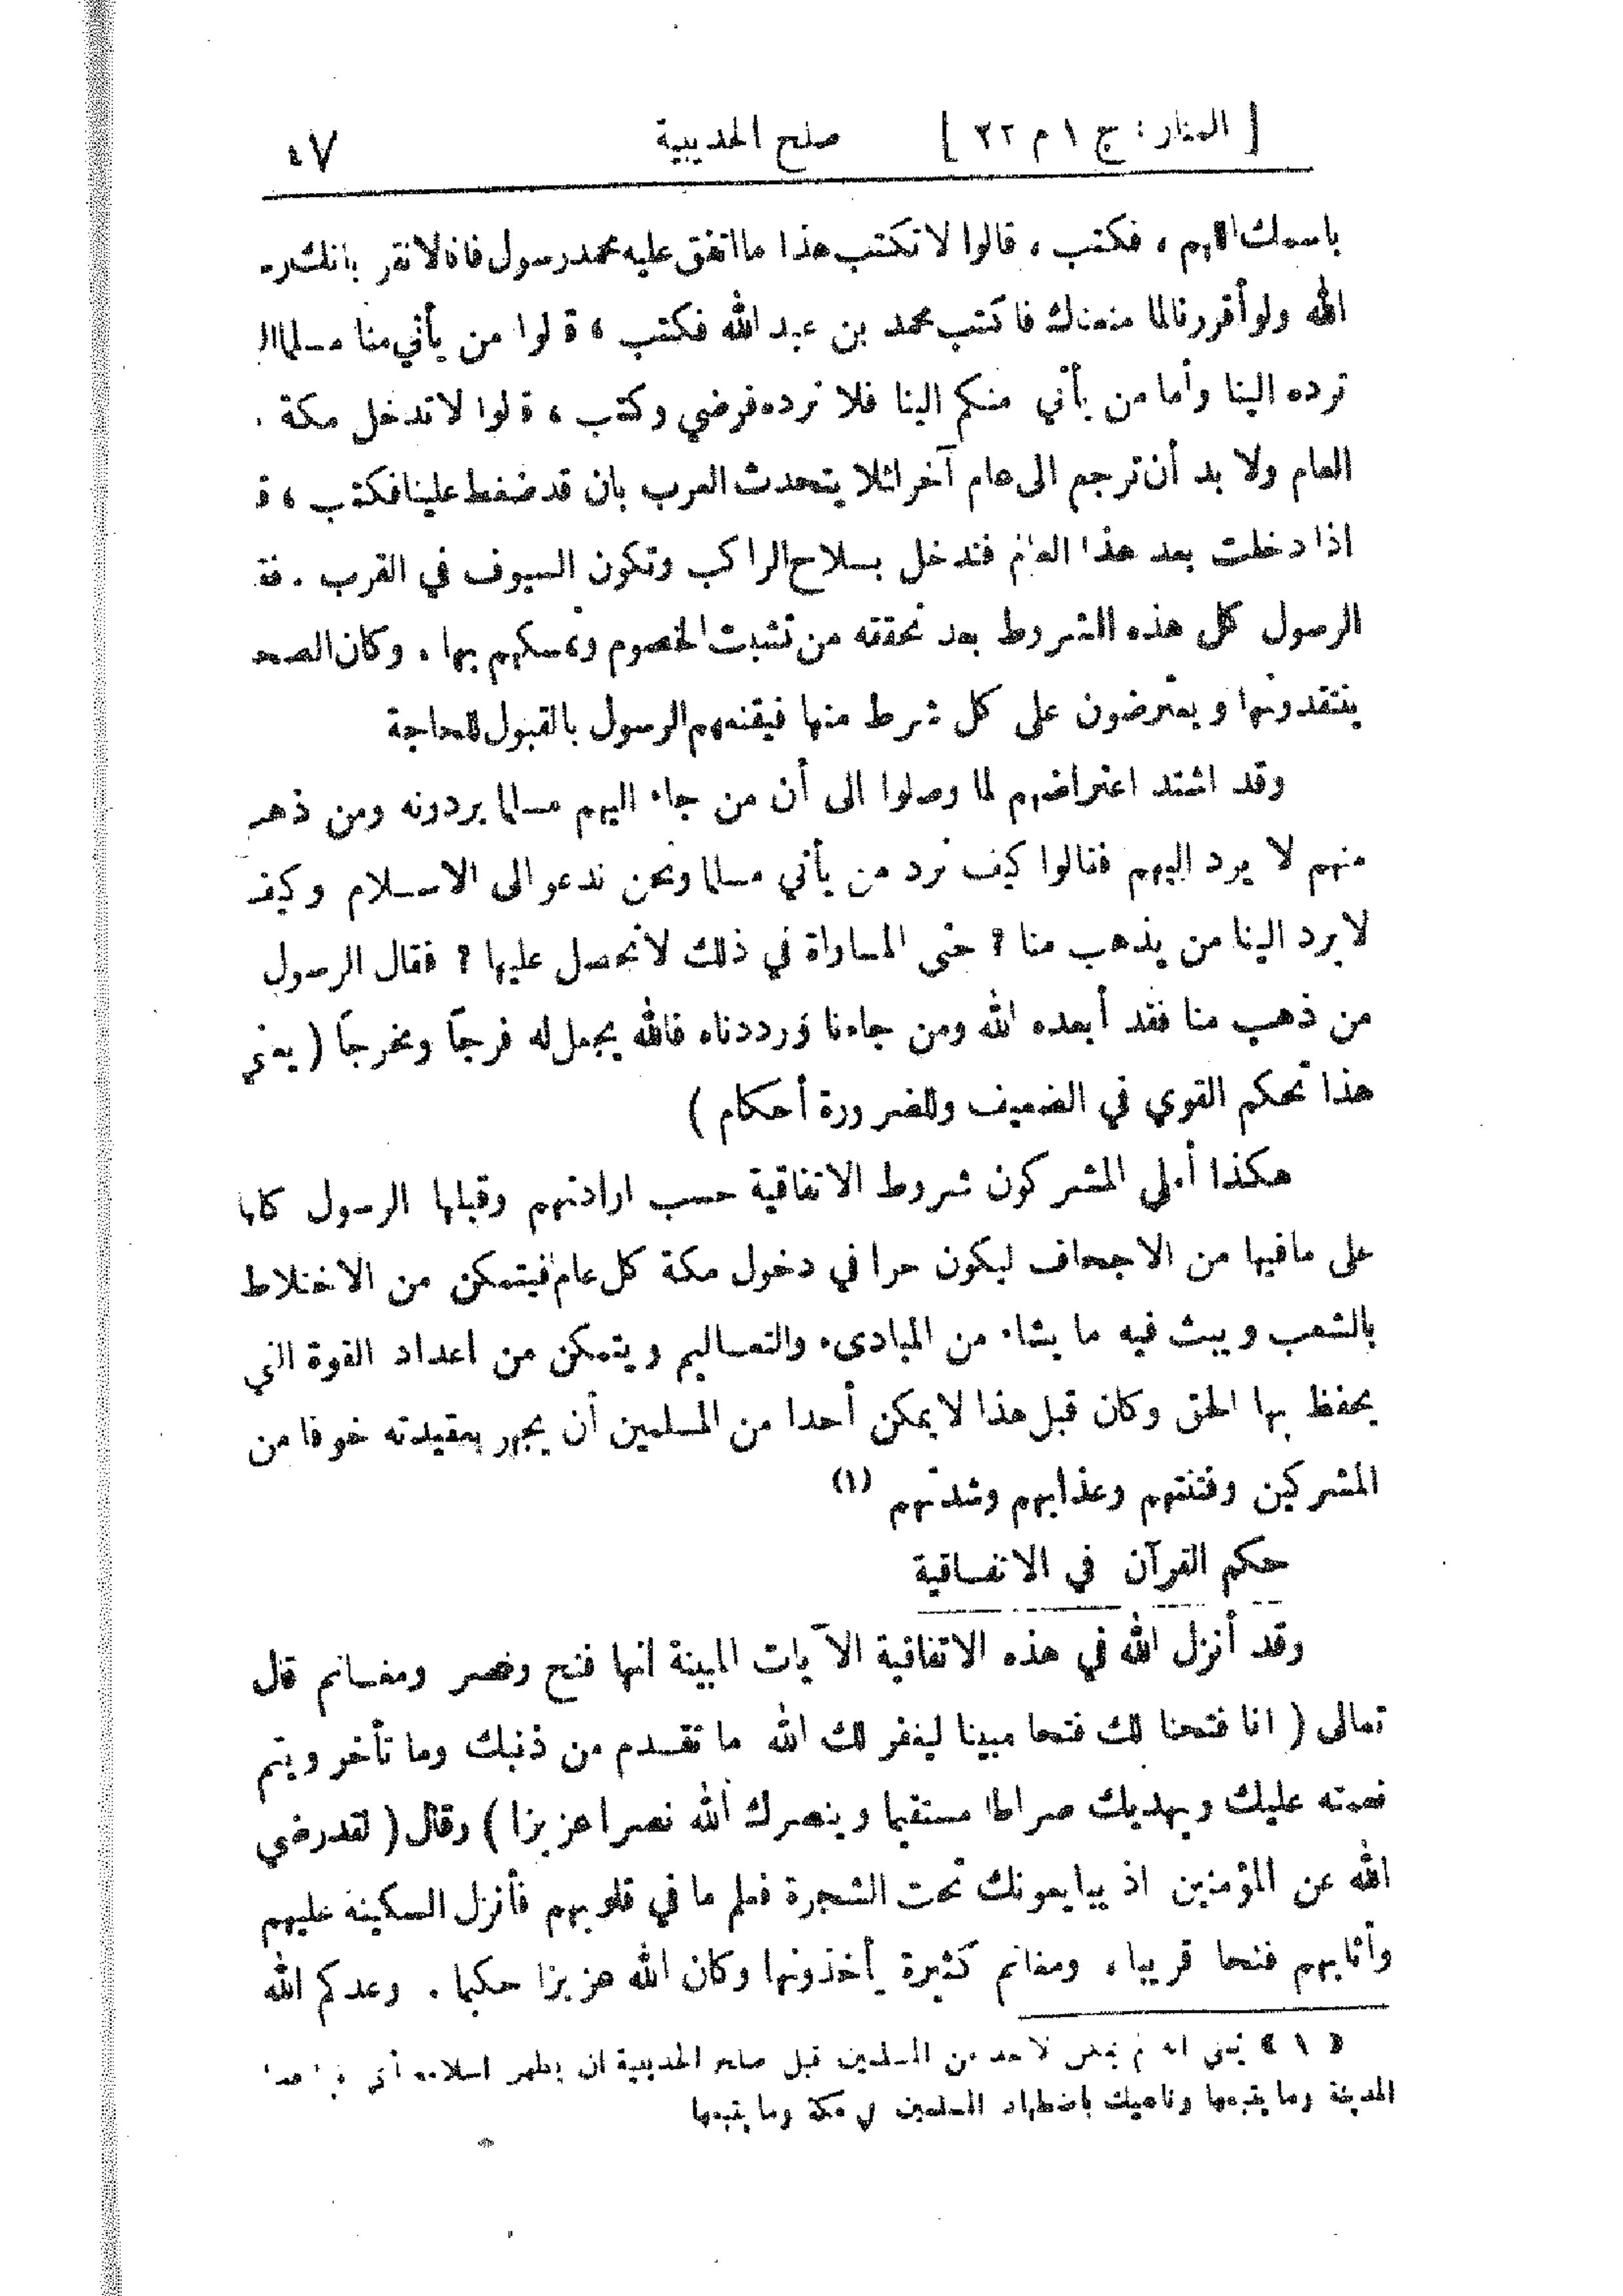 [ المنار : ج ١ م ٢٢ ] صلح الحديبية ٤٧
باسمك اللهم ، فكتب ، قالوا لا تكتب هذا ما اتفق عليه محمد رسول فاننا لا نقر بانك ر
الله ولو أقررنا لما منعناك فاكتب محمد بن عبد الله فكتب ، قالوا من يأتي منا مسلما
ترده الينا وأما من يأتي منكم الينا فلا نرده فرضي وكتب ، قالوا لا تدخل مكة
العام ولا بد أن ترجع الى عام آخر لئلا يتحدث العرب بان قد ضغط علينا فكتب ، ق
اذا دخلت بعد هذا العام فتدخل بسلاح الراكب وتكون السيوف في القرب . فق
الرسول كل هذه الشروط بعد تحققه من تثبت الخصوم وتمسكهم بها . وكان الصح
ينتقدونها ويعترضون على كل شرط منها فيقنعهم الرسول بالقبول للحاجة
وقد اشتد اعتراضهم لما وصلوا الى أن من جاء اليهم مسلما يردونه ومن ذهب
منهم لا يرد اليهم فقالوا كيف نرد من يأتي مسلما ونحن ندعو الى الاسلام وكيف
لا يرد الينا من يذهب منا ? حتى المساواة في ذلك لا نحصل عليها ? فقال الرسول
من ذهب منا فقد أبعده الله ومن جاءنا ورددناه فالله يجعل له فرجًا ومخرجًا ( يعني
هذا تحكم القوي في الضعيف وللضرورة أحكام )
هكذا أملى المشركون شروط الاتفاقية حسب ارادتهم وقبلها الرسول كلها
على ما فيها من الاجحاف ليكون حرا في دخول مكة كل عام فيتمكن من الاختلاط
بالشعب ويبث فيه ما يشاء من المبادىء والتعاليم ويتمكن من اعداد القوة التي
يحفظ بها الحق وكان قبل هذا لا يمكن أحدا من المسلمين أن يجهر بعقيدته خوفا من
المشركين وفتنتهم وعذابهم وشدتهم (١)
حكم القرآن في الاتفاقية
وقد أنزل الله في هذه الاتفاقية الآيات المبينة انها فتح ونصر ومغانم قال
تعالى ( انا فتحنا لك فتحا مبينا ليغفر لك الله ما تقدم من ذنبك وما تأخر ويتم
نعمته عليك ويهديك صراطا مستقيما وينصرك الله نصرا عزيزا ) وقال ( لقد رضي
الله عن المؤمنين اذ يبايعونك تحت الشجرة فعلم ما في قلوبهم فأنزل السكينة عليهم
وأثابهم فتحا قريبا ، ومغانم كثيرة يأخذونها وكان الله عزيزا حكيما . وعدكم الله
« ١ » يعني انه لم يمكن لأحد من المسلمين قبل صلح الحديبية ان يظهر اسلامه
المدينة وما يتبعها وناهيك باضطهاد المسلمين في مكة وما يتبعها